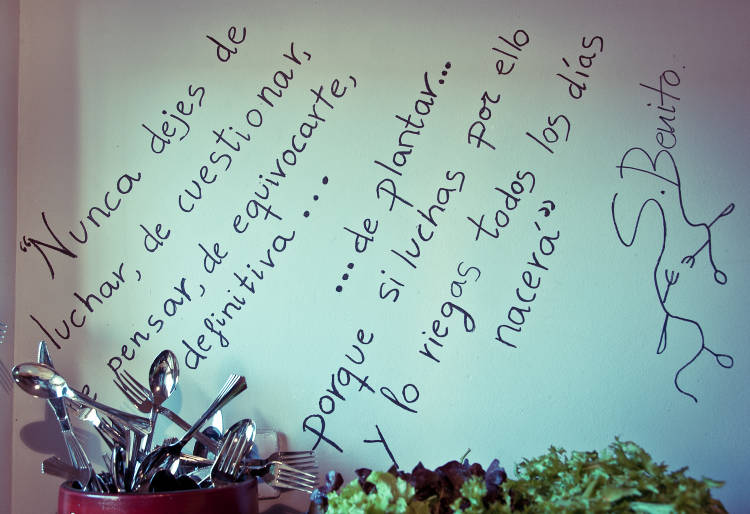 “Nunca dejes de
luchar, de cuestionar,
e pensar, de equivocarte,
definitiva...
...de plantar...
porque si luchas por ello
y lo riegas todos los días
nacerá”
S. Benito.